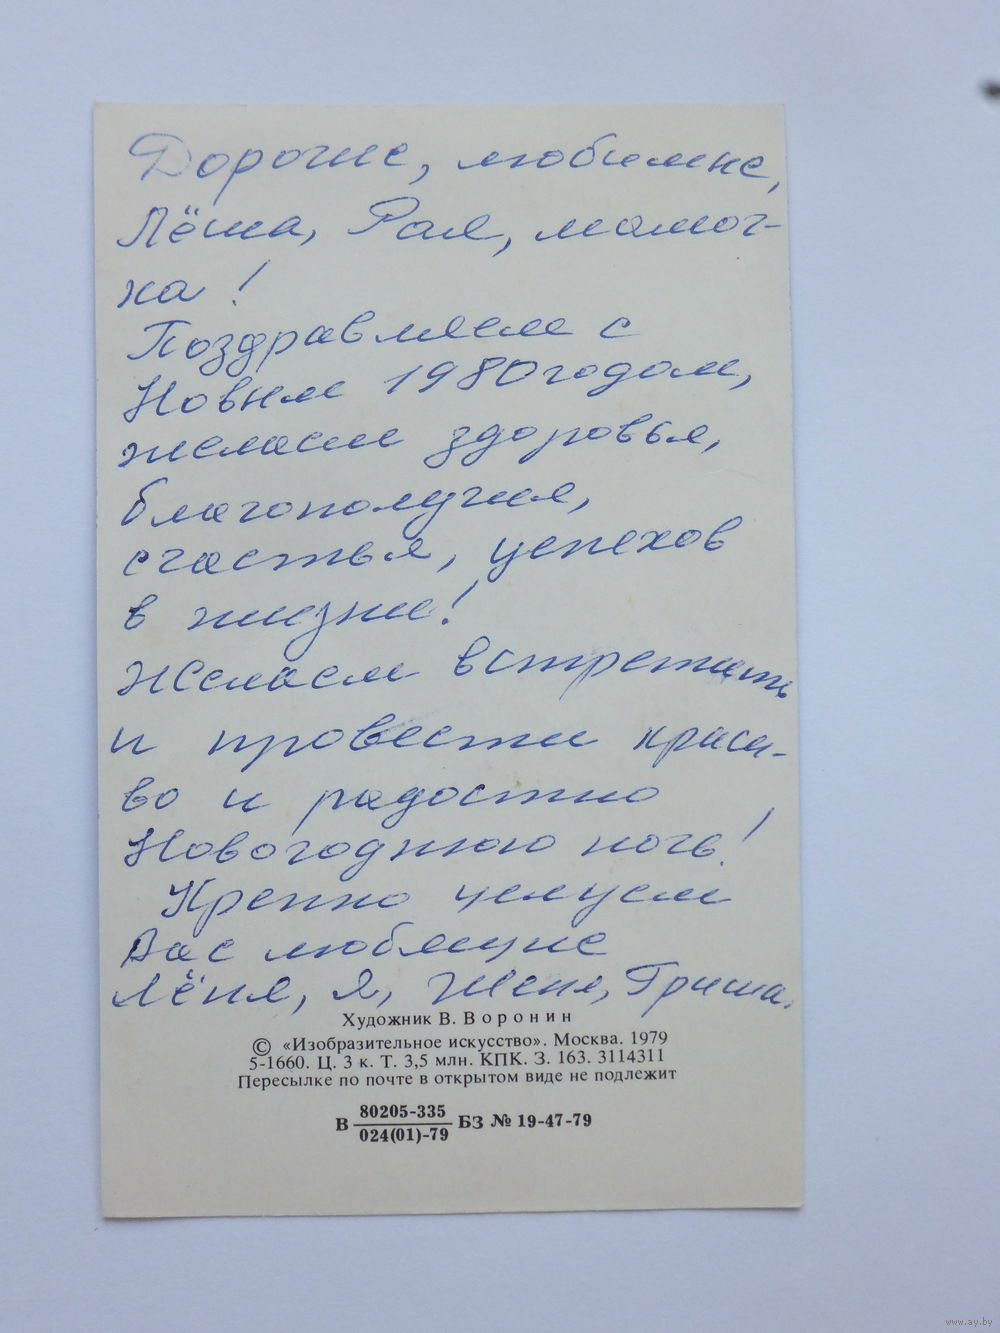 Дорогие, любимые,
Лёша, Рая, мамоч-
ка!
Поздравляем с
Новым 1980 годом,
желаем здоровья,
благополучия,
счастья, успехов
в жизни!
Желаем встретить
и провести краси-
во и радостно
Новогоднюю ночь!
Крепко целуем
Вас любящие
Лёня, я, Женя, Гриша.
Художник В. Воронин
© «Изобразительное искусство». Москва. 1979
5-1660. Ц. 3 к. Т. 3,5 млн. КПК. З. 163. 3114311
Пересылке по почте в открытом виде не подлежит
В 80205-335 БЗ № 19-47-79
024(01)-79
www.ay.by